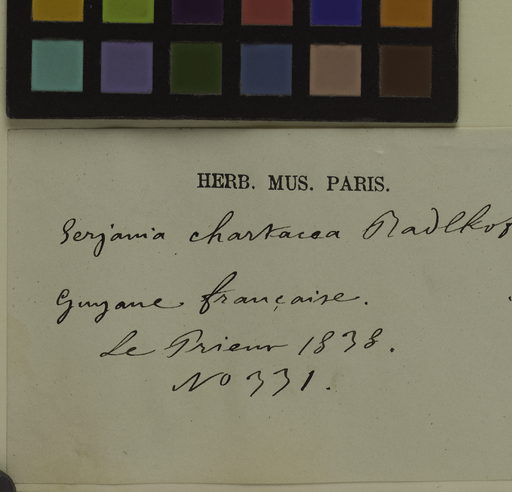 HERB. MUS. PARIS.
Serjania chartacea Radlkof
Guyane française.
Le Prieur 1838.
No 331.